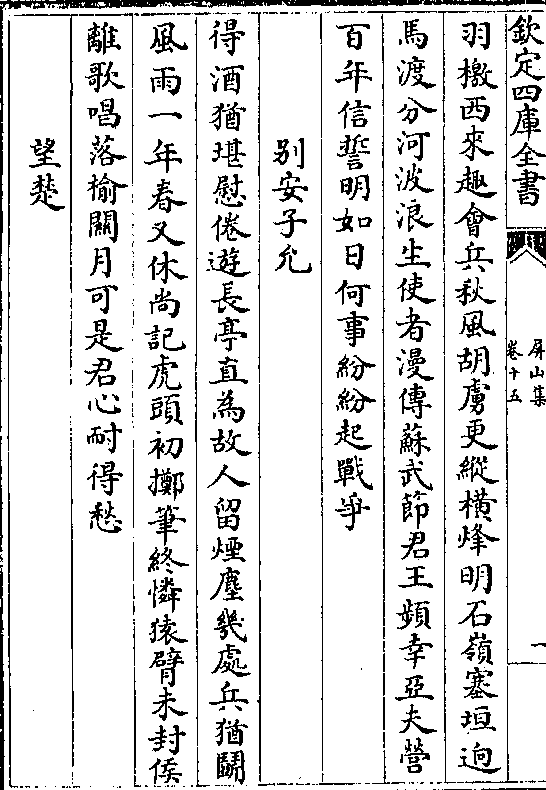 欽定四庫全書
屏山集
卷十五
一
羽檄西來趣會兵秋風胡虜更縱橫烽明石嶺塞垣逈
馬渡分河波浪生使者漫傳蘇武節君王頻幸亞夫營
百年信誓明如日何事紛紛起戰爭
别安子允
得酒猶堪慰倦遊長亭直為故人留煙塵幾處兵猶鬭
風雨一年春又休尚記虎頭初擲筆終憐猿臂未封侯
離歌唱落榆關月可是君心耐得愁
望楚